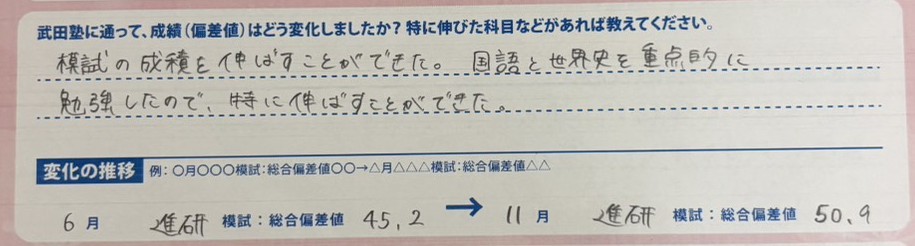 武田塾に通って、成績(偏差値)はどう変化しましたか？特に伸びた科目などがあれば教えてください。
模試の成積を伸ばすことができた。国語と世界史を重点的に
勉強したので、特に伸ばすことができた。
変化の推移 例：〇月〇〇〇模試：総合偏差値〇〇→△月△△△模試：総合偏差値△△
6月 進研 模試：総合偏差値 45.2 → 11月 進研 模試：総合偏差値 50.9